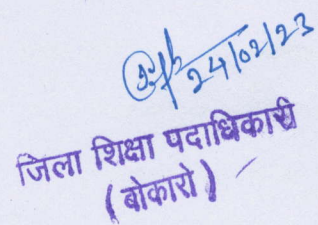 24/02/23
जिला शिक्षा पदाधिकारी
(बोकारो)